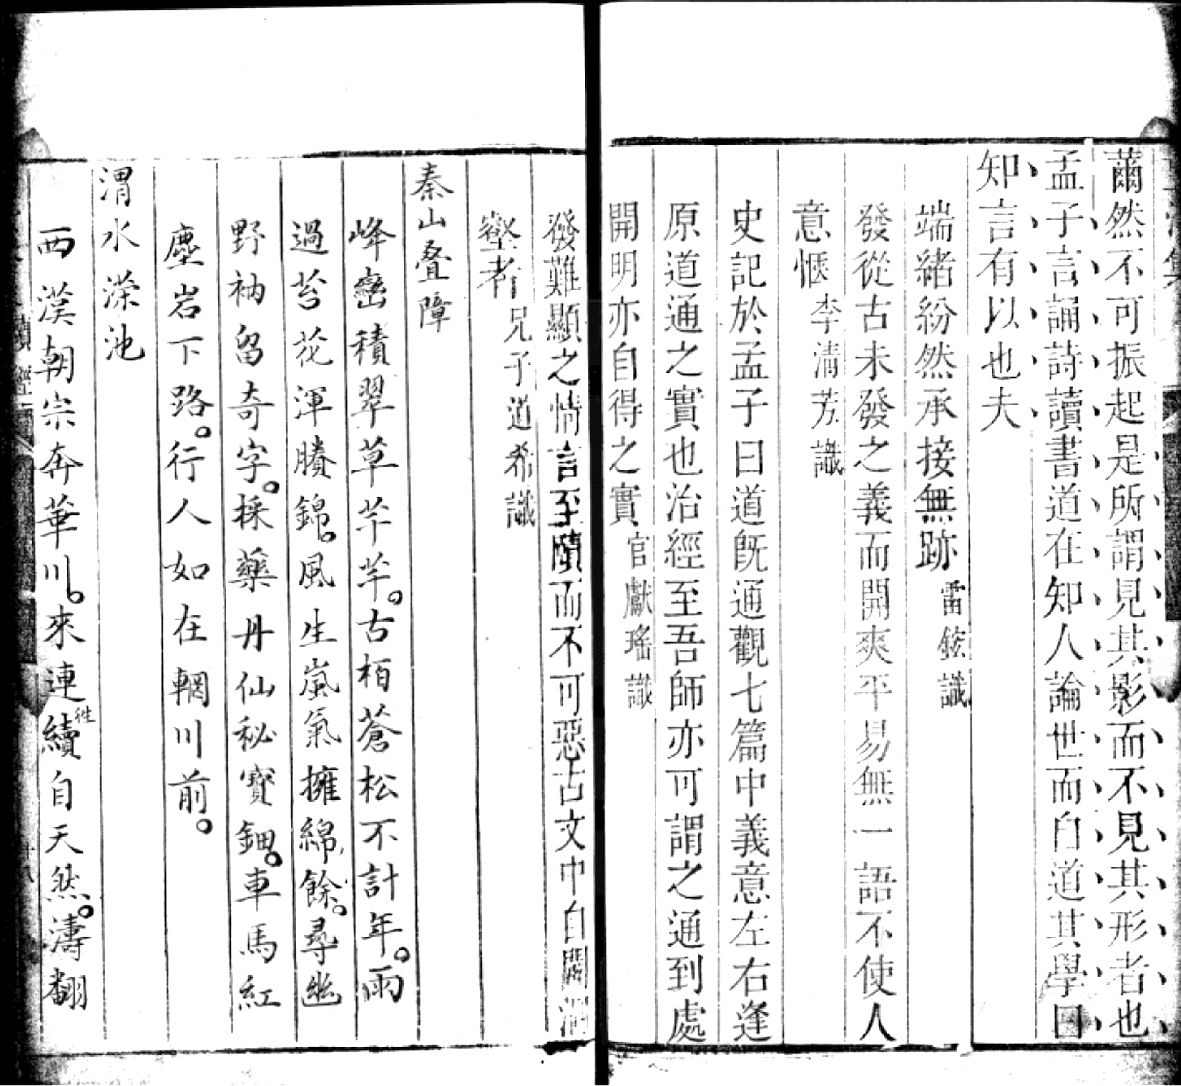 薾然不可振起是所謂見其影而不見其形者也
孟子言誦詩讀書道在知人論世而自道其學曰
知言有以也夫
端緒紛然承接無跡 雷鋐識
發從古未發之義而開爽平易無一語不使人
意愜 李清芳識
史記於孟子曰道旣通觀七篇中義意左右逢
原道通之實也治經至吾師亦可謂之通到處
開明亦自得之實 官獻瑤識
發難顯之情言至賾而不可惡古文中自闢洞
壑者 兄子道希識
秦山叠障
峰巒積翠草芊芊。古栢蒼松不計年。雨
過岩花渾勝錦。風生嵐氣擁綿餘。尋幽
野衲留奇字。採藥丹仙秘寶鈿。車馬紅
塵岩下路。行人如在輞川前。
渭水濚池
西漢朝宗奔華川。來連續徃自天然。濤翻